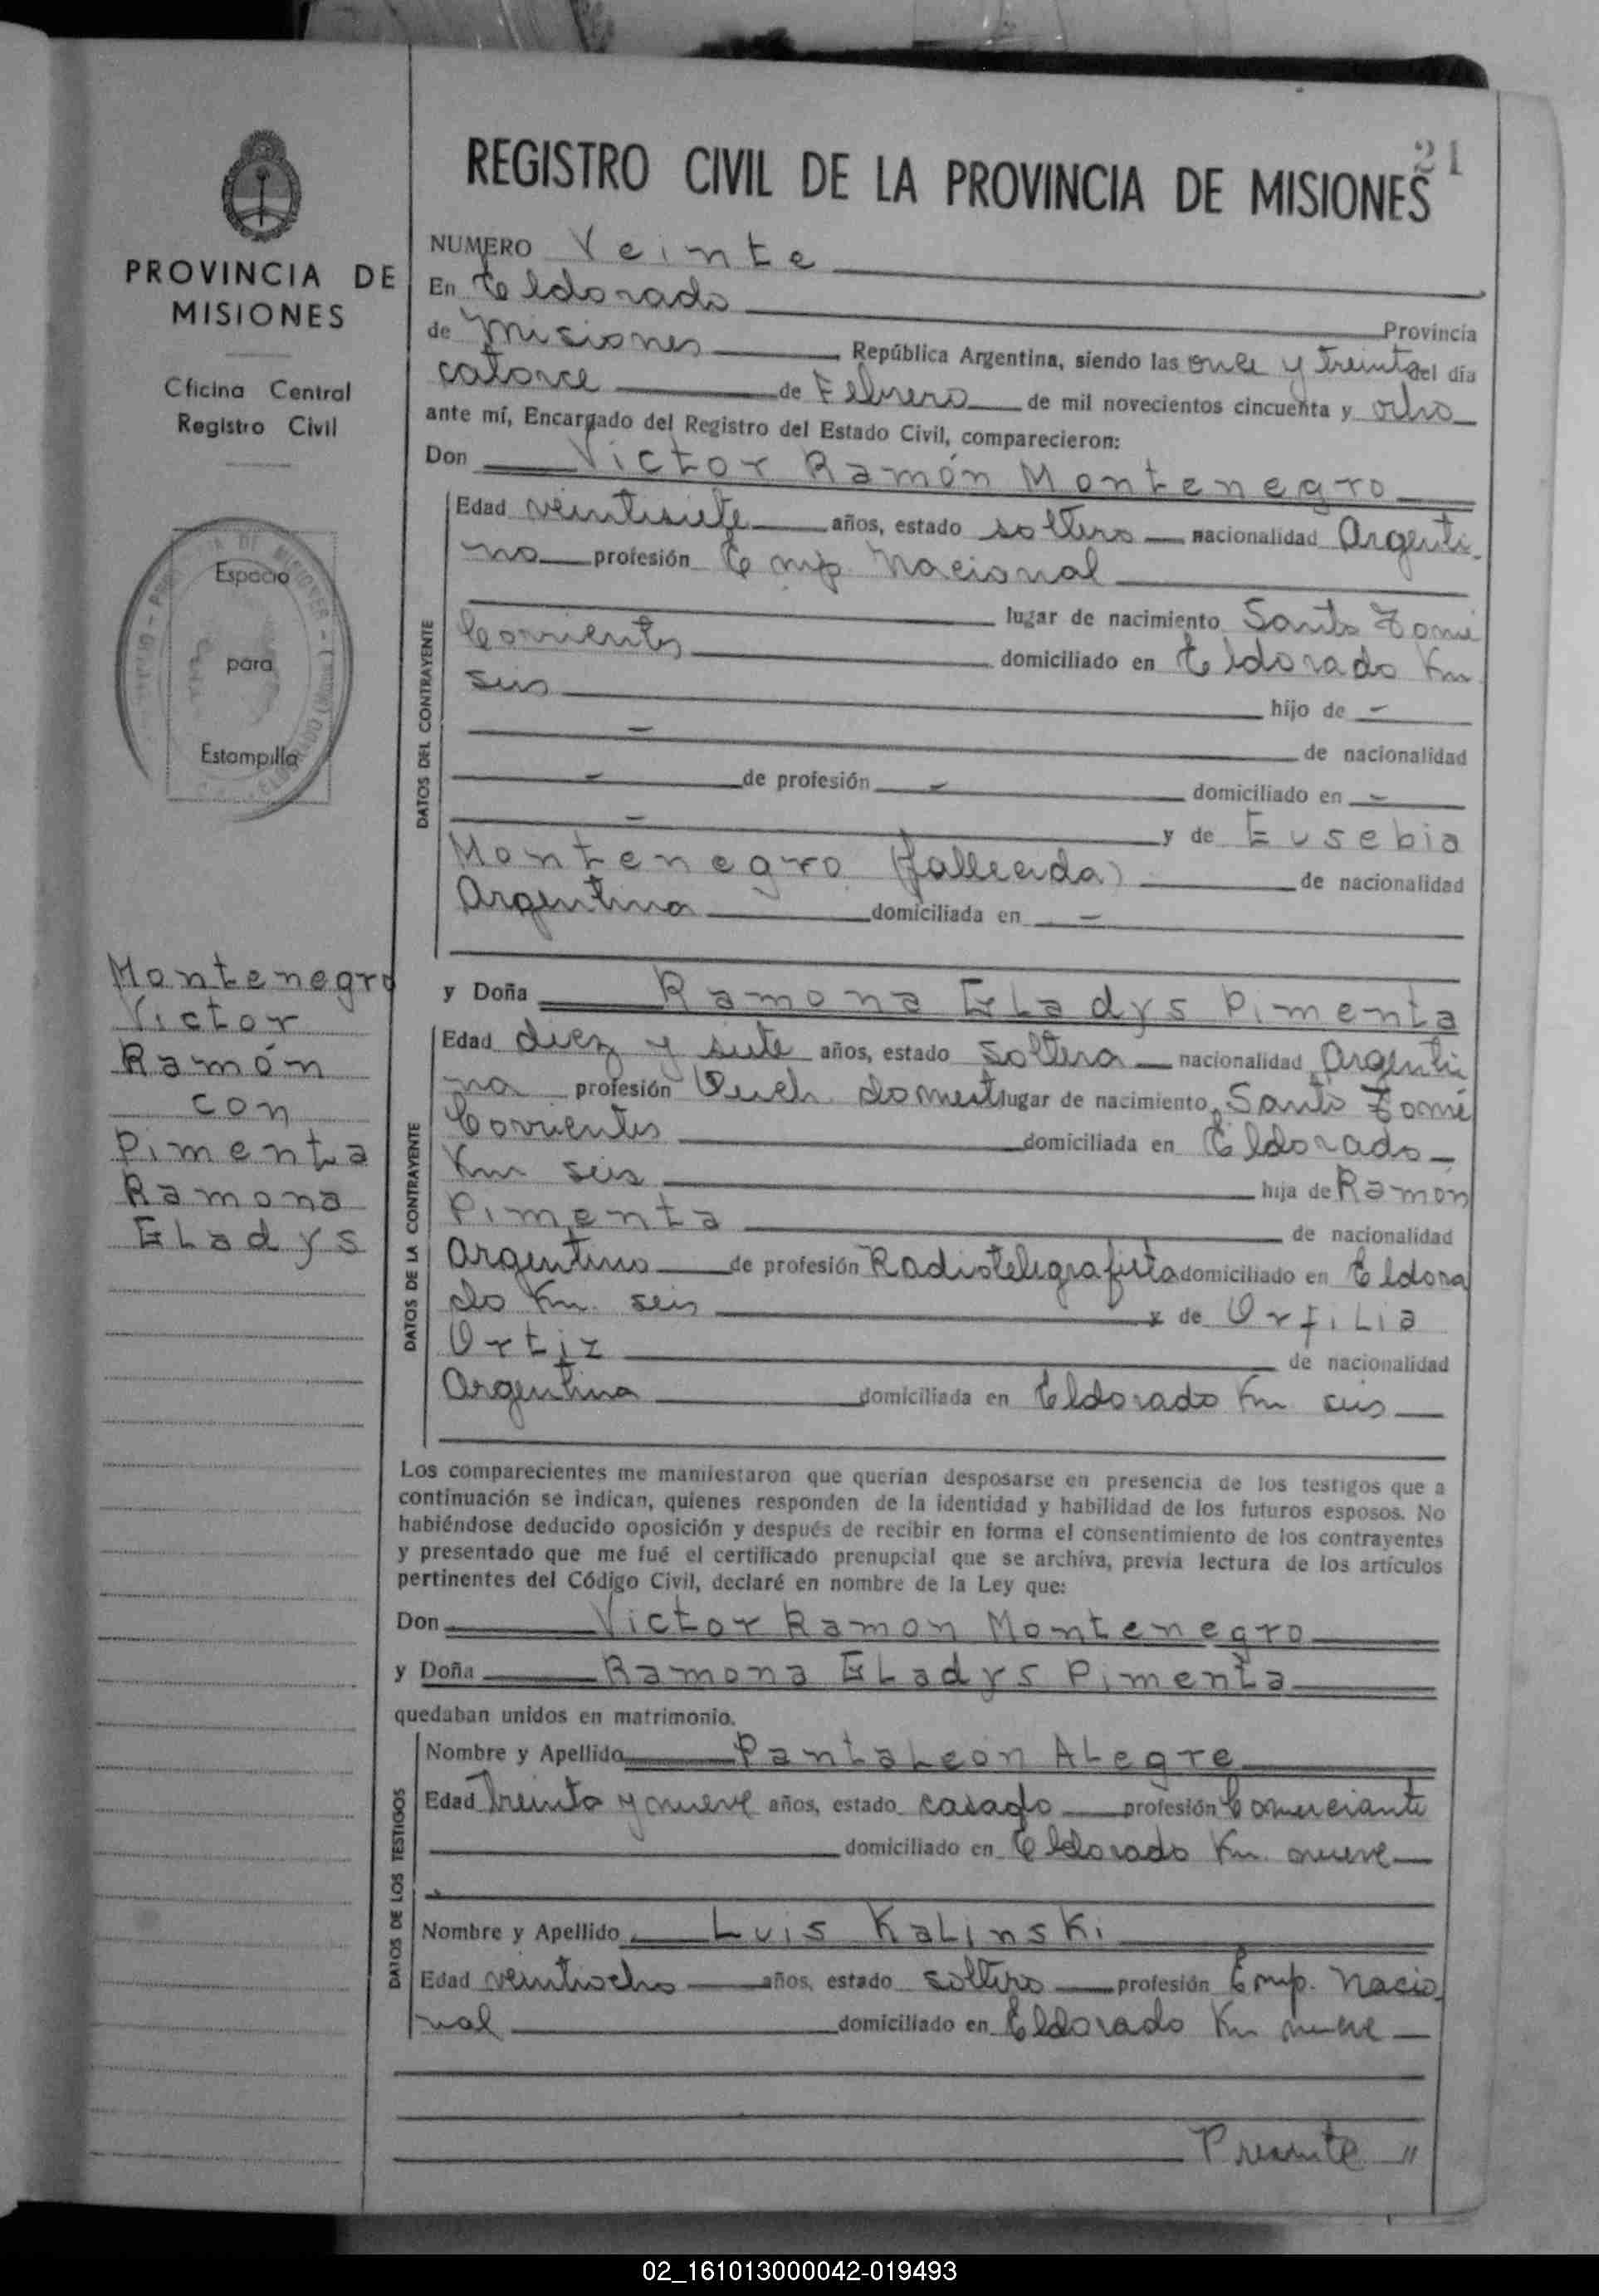 21
REGISTRO CIVIL DE LA PROVINCIA DE MISIONES
PROVINCIA DE
MISIONES
Oficina Central
Registro Civil
Espacio
para
Estampilla
Montenegro
Victor
Ramón
con
Pimenta
Ramona
GLadys
NUMERO Veinte
En Eldorado Provincia
de Misiones República Argentina, siendo las once y treinta del día
catorce de Febrero de mil novecientos cincuenta y ocho
ante mí, Encargado del Registro del Estado Civil, comparecieron:
Don Victor Ramón Montenegro
DATOS DEL CONTRAYENTE
Edad veintisiete años, estado soltero nacionalidad Argenti-
no profesión Emp. Nacional
lugar de nacimiento Santo Tomé
Corrientes domiciliado en Eldorado Km
seis hijo de -
- de nacionalidad
- de profesión - domiciliado en -
- y de Eusebia
Montenegro (fallecida) de nacionalidad
Argentina domiciliada en -
y Doña Ramona GLadys Pimenta
DATOS DE LA CONTRAYENTE
Edad diez y siete años, estado soltera nacionalidad Argenti
na profesión domest lugar de nacimiento Santo Tomé
Corrientes domiciliada en Eldorado
Km seis hija de Ramón
Pimenta de nacionalidad
Argentino de profesión Radiotelegrafista domiciliado en Eldora
do Km. seis y de OrfiLia
Ortiz de nacionalidad
Argentina domiciliada en Eldorado Km seis
Los comparecientes me manifestaron que querían desposarse en presencia de los testigos que a
continuación se indican, quienes responden de la identidad y habilidad de los futuros esposos. No
habiéndose deducido oposición y después de recibir en forma el consentimiento de los contrayentes
y presentado que me fué el certificado prenupcial que se archiva, previa lectura de los artículos
pertinentes del Código Civil, declaré en nombre de la Ley que:
Don Victor Ramon Montenegro
y Doña Ramona GLadys Pimenta
quedaban unidos en matrimonio.
DATOS DE LOS TESTIGOS
Nombre y Apellido PantaLeón ALegre
Edad Treinta y nueve años, estado casado profesión Comerciante
domiciliado en Eldorado Km. nueve
Nombre y Apellido Luis KaLinski
Edad veintiocho años, estado soltero profesión Emp. Nacio
nal domiciliado en Eldorado Km nueve
Presente "
02_161013000042-019493